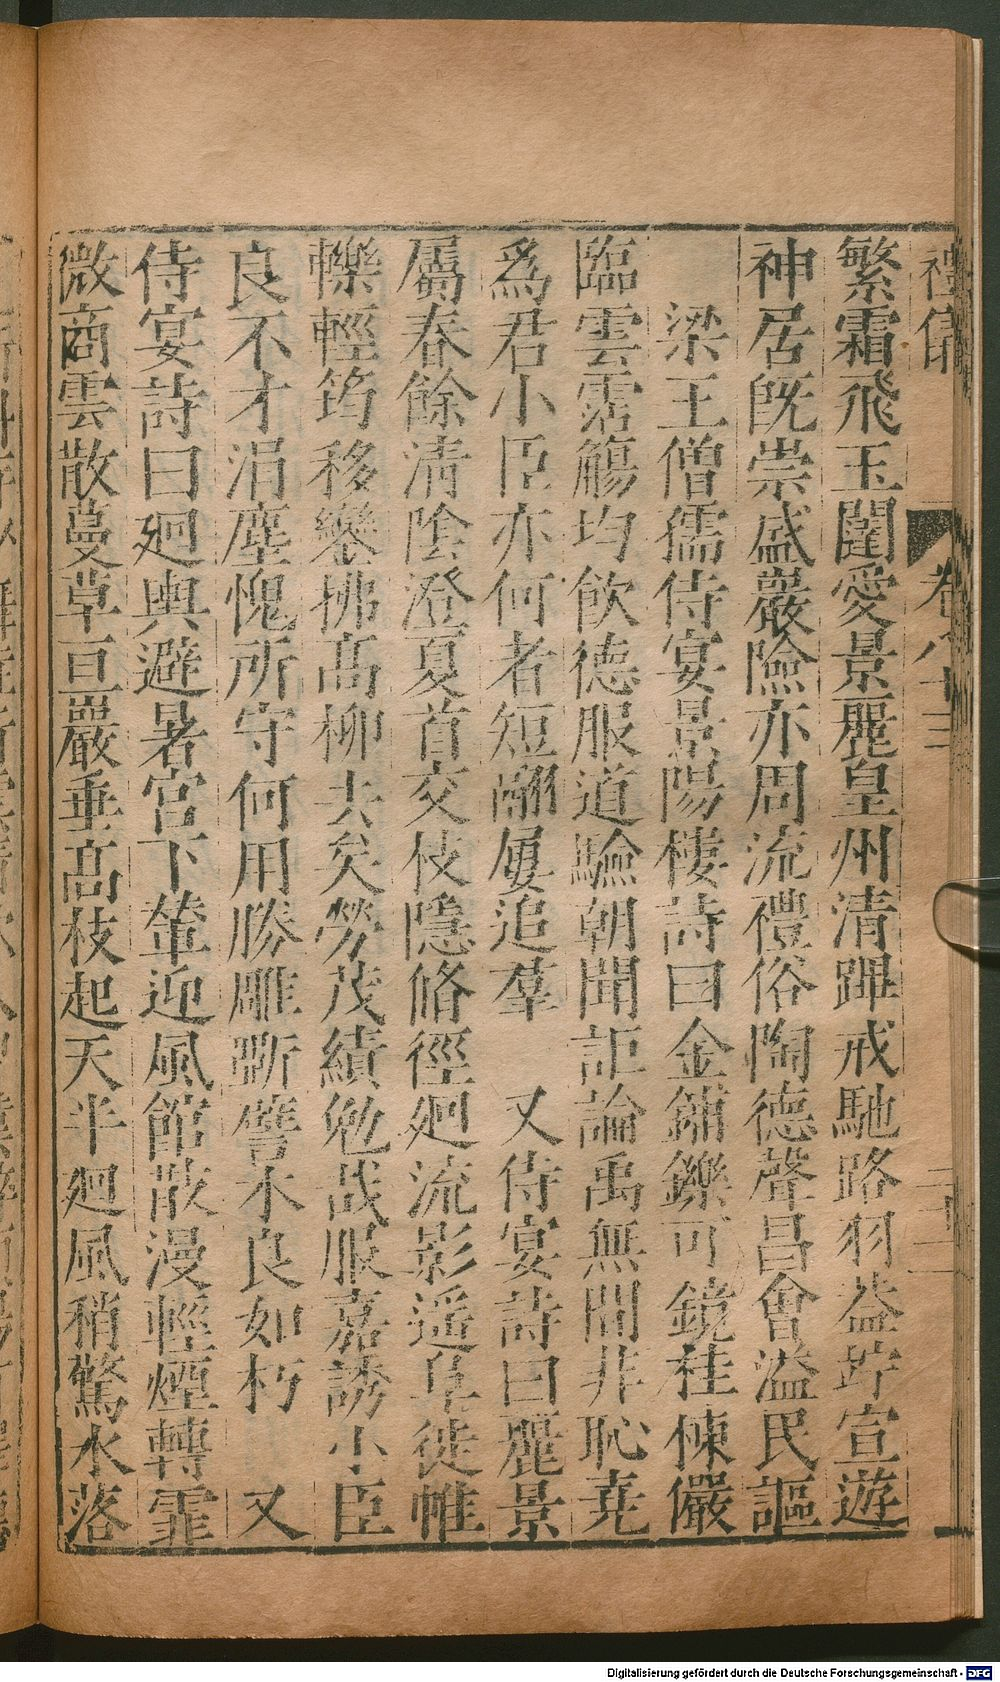 禮儀 卷八十三
繁霜飛玉闥愛景麗皇州清蹕戒馳路羽葢竚宣遊
神居旣崇盛嚴險亦周流禮俗陶德聲昌會溢民謳
梁王僧儒侍宴景陽樓詩曰金鋪鑠可鏡桂棟儼
臨雲霑觴均飲德服道驗朝聞詎論禹無間非恥堯
爲君小臣亦何者短翮屢追羣 又侍宴詩曰麗景
屬春餘清陰澄夏首交枝隱脩徑廻流影遥阜徙帷
轢輕筠移巒拂高柳去矣勞茂績勉哉服嘉誘小臣
良不才涓塵愧所守何用勝雕斲譬木良如朽 又
侍宴詩曰廻輿避暑宮下輦迎風館散漫輕煙轉霏
微商雲散蔓草亘巖垂高枝起天半廻風稍驚水落
Digitalisierung gefördert durch die Deutsche Forschungsgemeinschaft - DFG